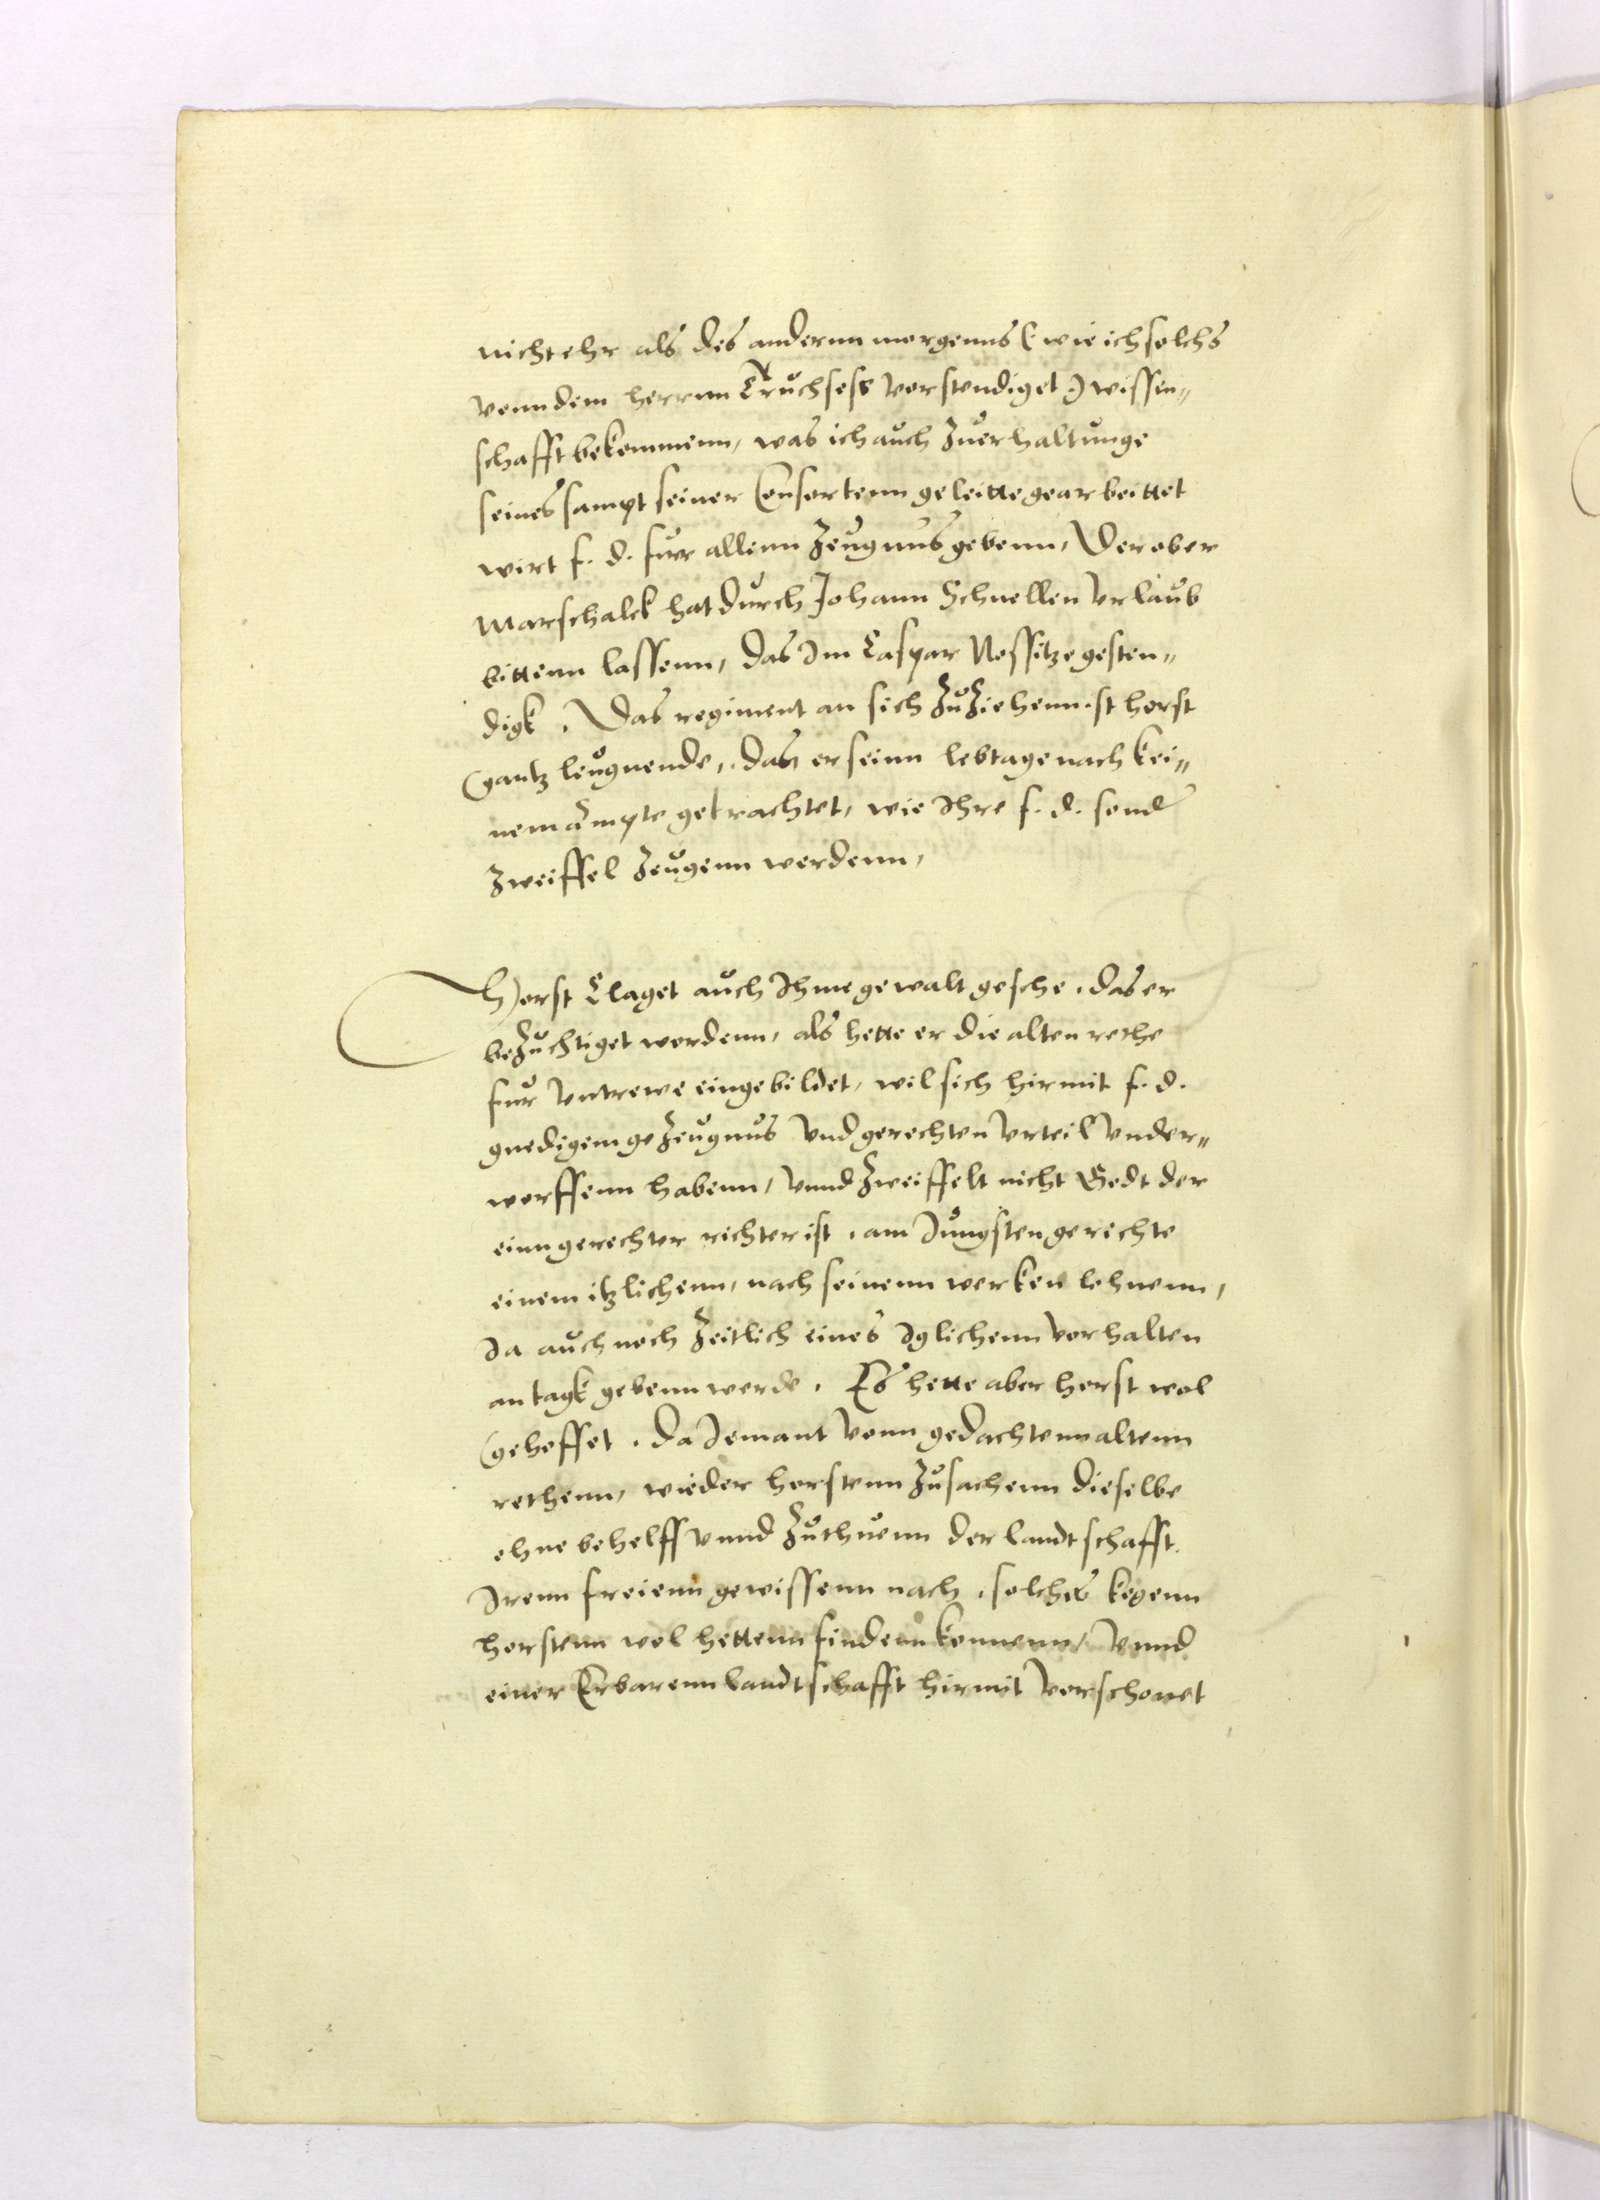 nicht ehr als des andernn morgenns (: wie ich solchs
vonn dem herrnn Truchses vorstendiget :) wissen=
schafft bekommenn, was ich auch zuerhaltunge
seines sampt seiner Consortenn geleitte gearbeittet
wirt f. d. furr allenn zeugnus gebenn, Der ober
Marschalck hat durch Johann Schnellen vrlaub
bittenn lassenn, das Im Caspar Nossitze gesten=
digk. Das regiment an sich zuziehenn ist horst
gantz leugnende, das er seinn lebtage nach kei=
nem ampte getrachtet, wie Ihre f. d. sond
zweiffel zeugenn werdenn,
Horst Claget auch Ihme gewalt geschehe, das er
bezuchtiget wordenn, als hette er die alten rethe
fur vntrewe eingebildet, wil sich hirmit f. d.
gnedigem gezeugnus vnd gerechten vrteil vnder=
worffenn habenn, vnnd zweiffelt nicht Godt der
einn gerechter richter ist, am Jungsten gerichte
einem itzlichenn, nach seinenn werken lohnenn,
Ja auch noch zeitlich eines Iglichenn vorhalten
an tagk gebenn werde. Es hette aber horst wol
gehoffet, da Jemant vonn gedachtenn altenn
rethenn, wieder horstenn zusachenn dieselbe
ohne behelff vnnd zuthuenn der landtschafft
Irenn freienn gewissenn nach, solches kegenn
horstenn wol hettenn findenn konnenn, vnnd
einer Erbarenn landtschafft hirmit vorschonet